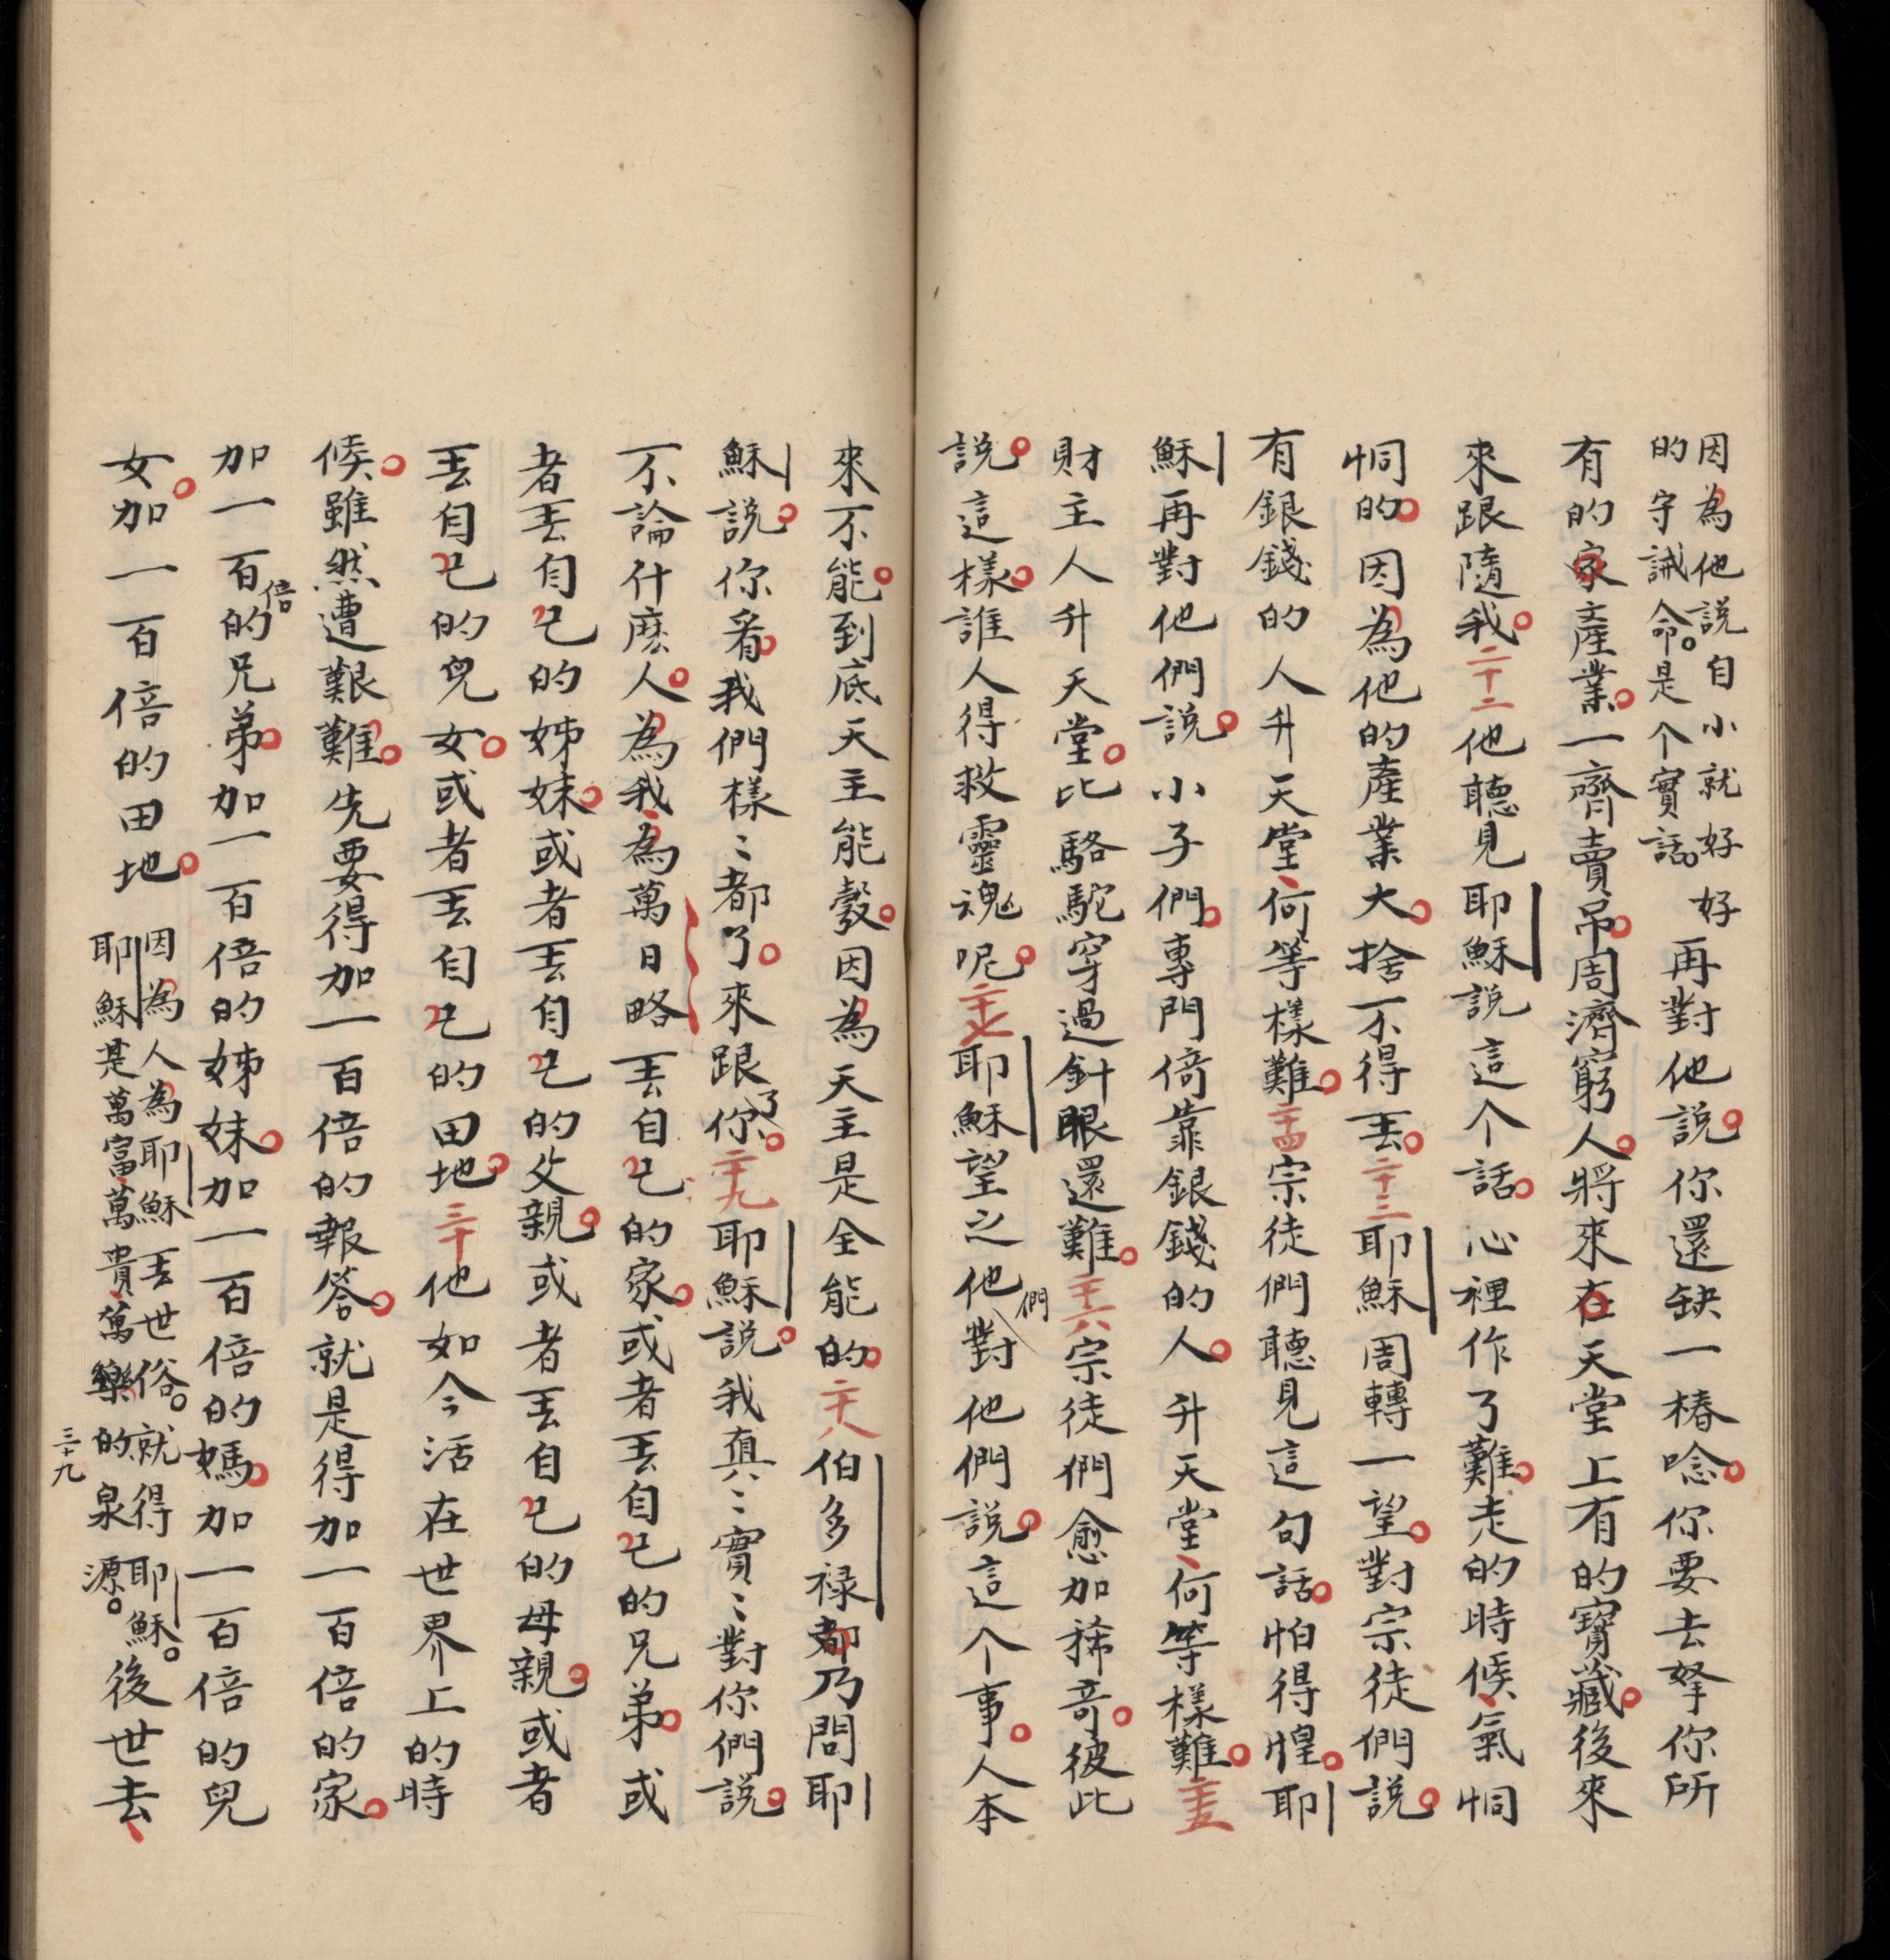 因為他說自小就好好好
的守誡命。是个實話。
再對他說你還缺一樁唸你要去拏你所
有的家產業一齊賣吊周濟窮人將來在天堂上有的寶藏後來
來跟隨我二十二他聽見耶穌說這个話心裡作了難走的時候氣恫
恫的因為他的產業大捨不得丟二十三耶穌周轉一望對宗徒們說
有銀錢的人升天堂何等樣難二十四宗徒們聽見這句話怕得惶耶
穌再對他們說小子們專門倚靠銀錢的人升天堂何等樣難二十五
財主人升天堂比駱駝穿過針眼還難二十六宗徒們愈加稀奇彼此
說這樣誰人得救靈魂呢二十七耶穌望之他們對他們說這个事人本
來不能到底天主能彀因為天主是全能的二十八伯多祿都乃問耶
穌說你看我們樣〻都了來跟了你二十九耶穌說我真〻實〻對你們說
不論什麽人為我為萬日略丟自己的家或者丟自己的兄弟或
者丟自己的姊妹或者丟自己的父親或者丟自己的母親或者
丟自己的兒女或者丟自己的田地三十他如今活在世界上的時
候雖然遭艱難先要得加一百倍的報答就是得加一百倍的家
加一百倍的兄弟加一百倍的姊妹加一百倍的媽加一百倍的兒
女加一百倍的田地
因為人為耶穌丟世俗。就得耶穌。
耶穌是萬富萬貴萬樂的泉源。
後世去
三十九